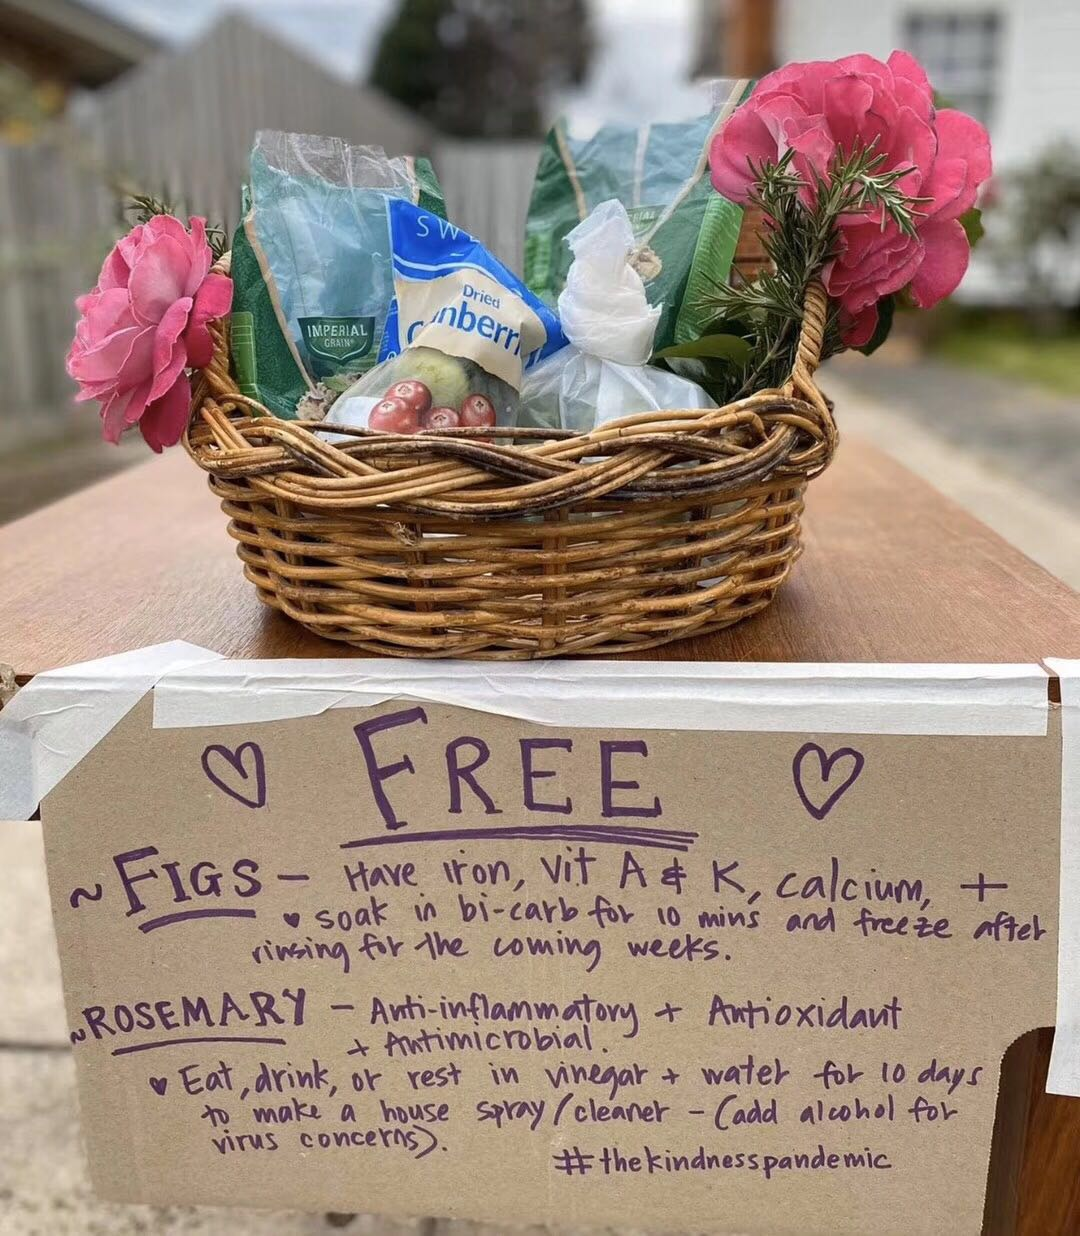 SW
Dried
IMPERIAL
GRAIN
FREE
~ FIGS – Have iron, Vit A & K, calcium, +
♥ soak in bi-carb for 10 mins and freeze after
rinsing for the coming weeks.
~ROSEMARY – Anti-inflammatory + Antioxidant
+ Antimicrobial.
♥ Eat, drink, or rest in vinegar + water for 10 days
to make a house spray/cleaner – (add alcohol for
virus concerns).
#thekindnesspandemic